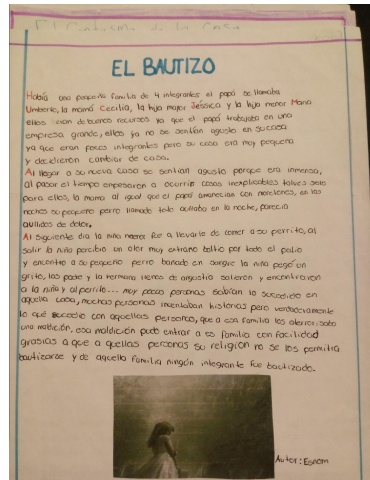 EL BAUTIZO
Había una pequeña familia de 4 integrantes el papá se llamaba
Umberto, la mamá Cecilia, la hija mayor Jessica y la hija menor Maria
ellos eran de buenos recursos ya que el papá trabajaba en una
empresa grande, ellos ya no se sentían agusto en su casa
ya que eran poces integrantes pero su casa era muy pequeña
y decidieron cambiar de casa.
Al llegar a su nueva casa se sentian agusto porque era inmensa,
al pasar el tiempo empesaron a ocurrir cosas inexplicables talves solo
para ellos, la mama al igual que el papá amanecian con moretones, en las
noches su pequeño perro llamado todo aullaba en la noche, parecia
aullidos de dolor.
Al siguiente dia la niña menor fue a llevarle de comer a su perrito, al
salir la niña percibio un olor muy extraño salto por todo el patio
y encontro a su pequeño perro bañado en sangre la niña pegó un
grito, los padre y la hermana llenos de angustia salieron y encontraron
a la niña y al perrito... muy pocas personas sabian lo sucedido en
aquella casa, muchas personas inventaban historias pero verdaderamente
lo que sucedio con aquellas personas, que a esa familia los aterrorisaba
una maldición. esa maldición pudo entrar a es familia con facilidad
grasias a que a quellas personas su religion no se los permitia
bautizarse y de aquella familia ningún integrante fue bautizado.
Autor: Esnom